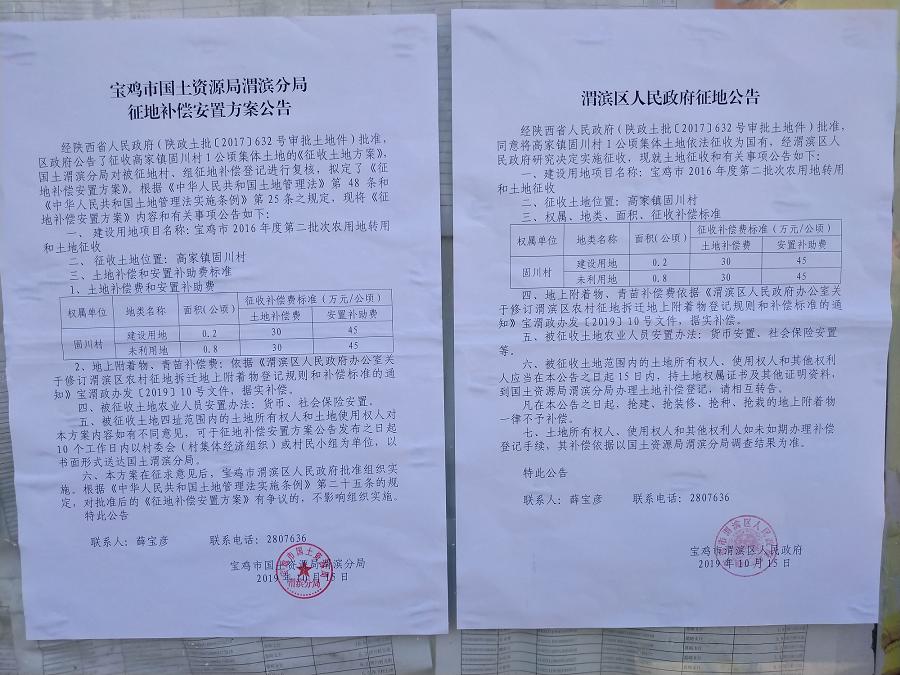 宝鸡市国土资源局渭滨分局
征地补偿安置方案公告
经陕西省人民政府(陕政土批〔2017〕632号审批土地件)批准,
区政府公告了征收高家镇固川村1公顷集体土地的《征收土地方案》,
国土渭滨分局对被征地村、组征地补偿登记进行复核,拟定了《征
地补偿安置方案》。根据《中华人民共和国土地管理法》第48条和
《中华人民共和国土地管理法实施条例》第25条之规定,现将《征
地补偿安置方案》内容和有关事项公告如下:
一、 建设用地项目名称:宝鸡市2016年度第二批次农用地转用
和土地征收
二、 征收土地位置:高家镇固川村
三、土地补偿和安置补助费标准
1、土地补偿费和安置补助费
权属单位 地类名称 面积(公顷) 征收补偿费标准(万元/公顷)
土地补偿费 安置补助费
固川村 建设用地 0.2 30 45
未利用地 0.8 30 45
2、地上附着物、青苗补偿费:依据《渭滨区人民政府办公室关
于修订渭滨区农村征地拆迁地上附着物登记规则和补偿标准的通
知》宝渭政办发〔2019〕10号文件,据实补偿。
四、被征收土地农业人员安置办法:货币、社会保险安置。
五、被征收土地四址范围内的土地所有权人和土地使用权人对
本方案内容如有不同意见,可于征地补偿安置方案公告发布之日起
10个工作日内以村委会(村集体经济组织)或村民小组为单位,以
书面形式送达国土渭滨分局。
六、本方案在征求意见后,宝鸡市渭滨区人民政府批准组织实
施。根据《中华人民共和国土地管理法实施条例》第二十五条的规
定,对批准后的《征地补偿安置方案》有争议的,不影响组织实施。
特此公告
联系人:薛宝彦 联系电话:2807636
宝鸡市国土资源局渭滨分局
2019年10月15日
渭滨区人民政府征地公告
经陕西省人民政府(陕政土批〔2017〕632号审批土地件)批准,
同意将高家镇固川村1公顷集体土地依法征收为国有,经渭滨区人
民政府研究决定实施征收,现就土地征收和有关事项公告如下:
一、建设用地项目名称:宝鸡市2016年度第二批次农用地转用
和土地征收
二、征收土地位置:高家镇固川村
三、权属、地类、面积、征收补偿标准
权属单位 地类名称 面积(公顷) 征收补偿费标准(万元/公顷)
土地补偿费 安置补助费
固川村 建设用地 0.2 30 45
未利用地 0.8 30 45
四、地上附着物、青苗补偿费依据《渭滨区人民政府办公室关
于修订渭滨区农村征地拆迁地上附着物登记规则和补偿标准的通
知》宝渭政办发〔2019〕10号文件,据实补偿。
五、被征收土地农业人员安置办法:货币安置、社会保险安置
等。
六、被征收土地范围内的土地所有权人、使用权人和其他权利
人应当在本公告之日起15日内,持土地权属证书及其他证明资料,
到国土资源局渭滨分局办理土地补偿登记,请相互转告。
凡在本公告之日起,抢建、抢装修、抢种、抢栽的地上附着物
一律不予补偿。
七、土地所有权人、使用权人和其他权利人如未如期办理补偿
登记手续,其补偿依据以国土资源局渭滨分局调查结果为准。
特此公告
联系人:薛宝彦 联系电话:2807636
宝鸡市渭滨区人民政府
2019年10月15日